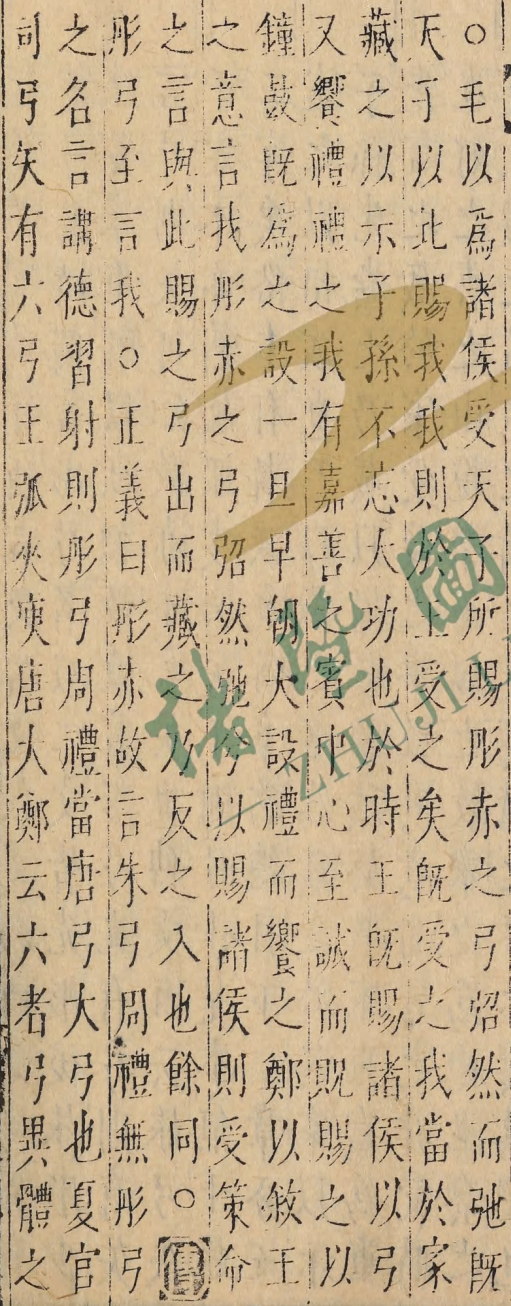 ○毛以爲諸侯受天子所賜彤赤之弓弨然而弛既
天子以此賜我我則於王受之矣既受之我當於家
藏之以示子孫不忘大功也於時王既賜諸侯以弓
又饗禮禮之我有嘉善之賓中心至誠而貺賜之以
鐘鼓既爲之設一旦早朝大設禮而饗之鄭以敘王
之意言我彤赤之弓弨然弛兮以賜諸侯則受策命
之言與此賜之弓出而藏之乃反之入也餘同○傳
彤弓至言我○正義曰彤赤故言朱弓周禮無彤弓
之名言講德習射則彤弓周禮當唐弓大弓也夏官
司弓矢有六弓王弧夾庾唐大鄭云六者弓異體之
諸暨圖
ZHUJI LI